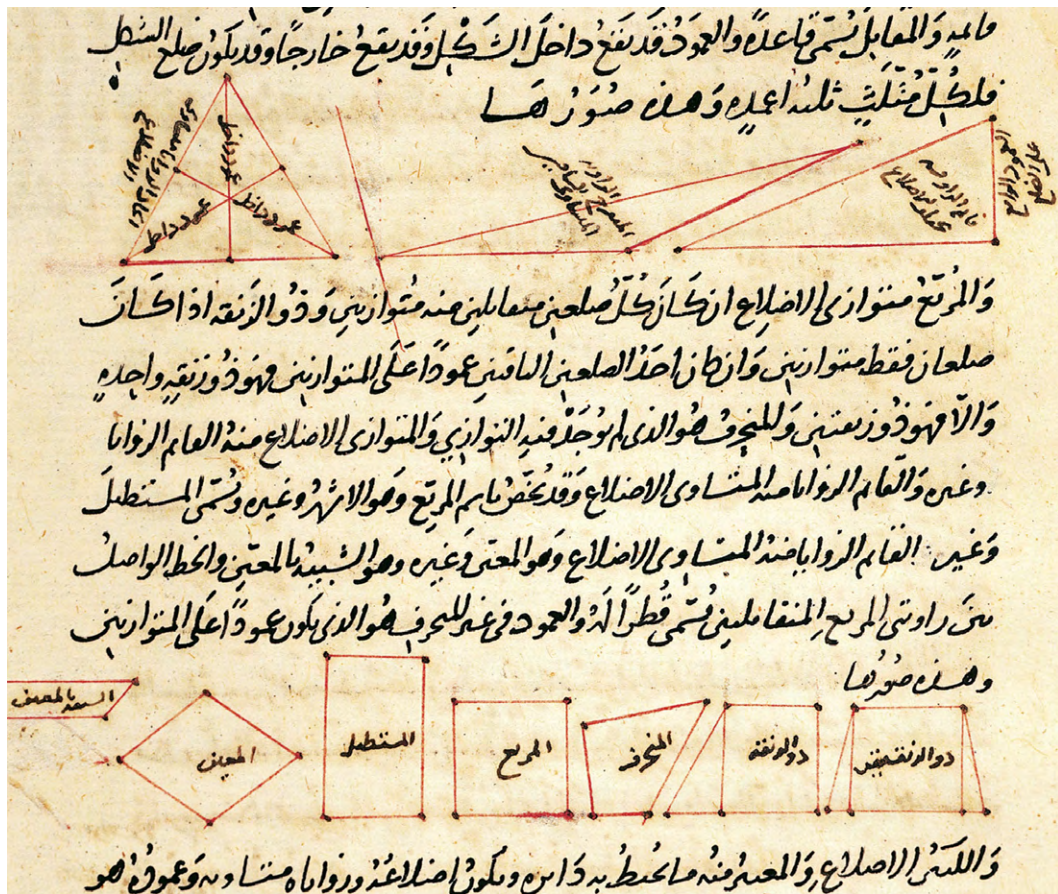 قايمه والمقابل يسمى قاعده والعمود قد يقع داخل الشكل وقد يقع خارجا وقد يكون ضلع الشكل
فلكل مثلث ثلثه اعمده وهذه صورها
عمود داخل
عمود داخل
عمود داخل
المنفرج الزاويه
المتساوى الساقين
قايم الزاويه
مختلف الاضلاع
والمربع متوازى الاضلاع ان كان كل ضلعين متقابلين منه متوازيين وذو الزنقه اذا كان
ضلعان فقط متوازيين وان كان احد الضلعين الباقيين عمودا على المتوازيين فهو ذو زنقه واحده
والا فهو ذو زنقتين والمنحرف هو الذى لم يوجد فيه التوازي والمتوازى الاضلاع منه القايم الزوايا
وغيره والقايم الزوايا منه المتساوى الاضلاع وقد يخص باسم المربع وهو الاشهر وغيره ويسمى المستطيل
وغير القايم الزوايا منه المتساوى الاضلاع وهو المعين وغيره وهو الشبيه بالمعين والخط الواصل
بين زاويتى المربع المتقابلتين يسمى قطرا له والعمود فى غير المنحرف هو الذى يكون عمودا على المتوازيين
وهذه صورها
ذو الزنقتين
ذو الزنقه
المنحرف
المربع
المستطيل
المعين
الشبيه بالمعين
والكثير الاضلاع والمعتبر منه ما يحيط به دايره ويكون اضلاعه وزواياه متساويه وعموده هو